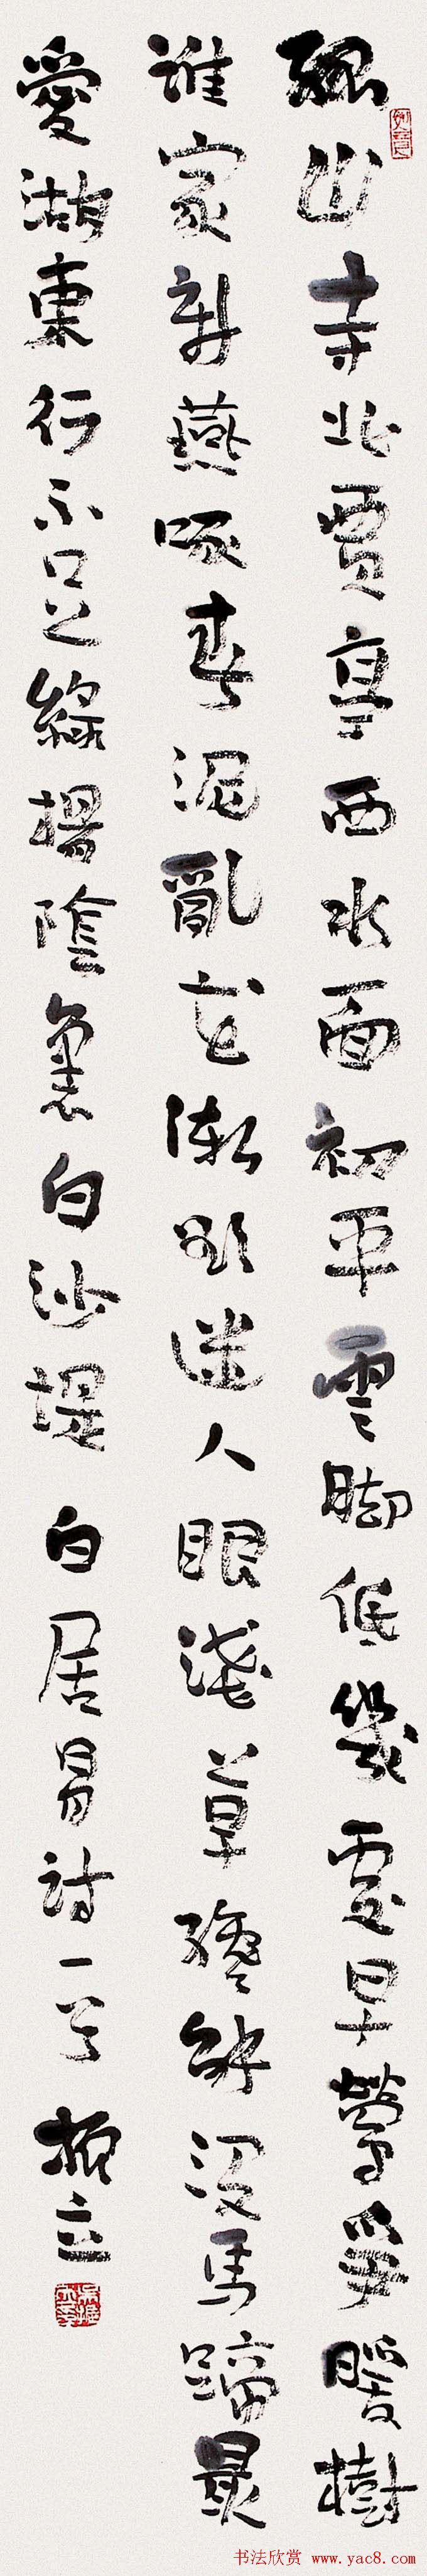 孤山寺北賈亭西水面初平雲脚低幾處早鶯爭暖樹
誰家新燕啄春泥亂花漸欲迷人眼淺草纔能沒馬蹄最
愛湖東行不足綠楊陰裏白沙堤 白居易詩一首 振立
书法欣赏 www.yac8.com